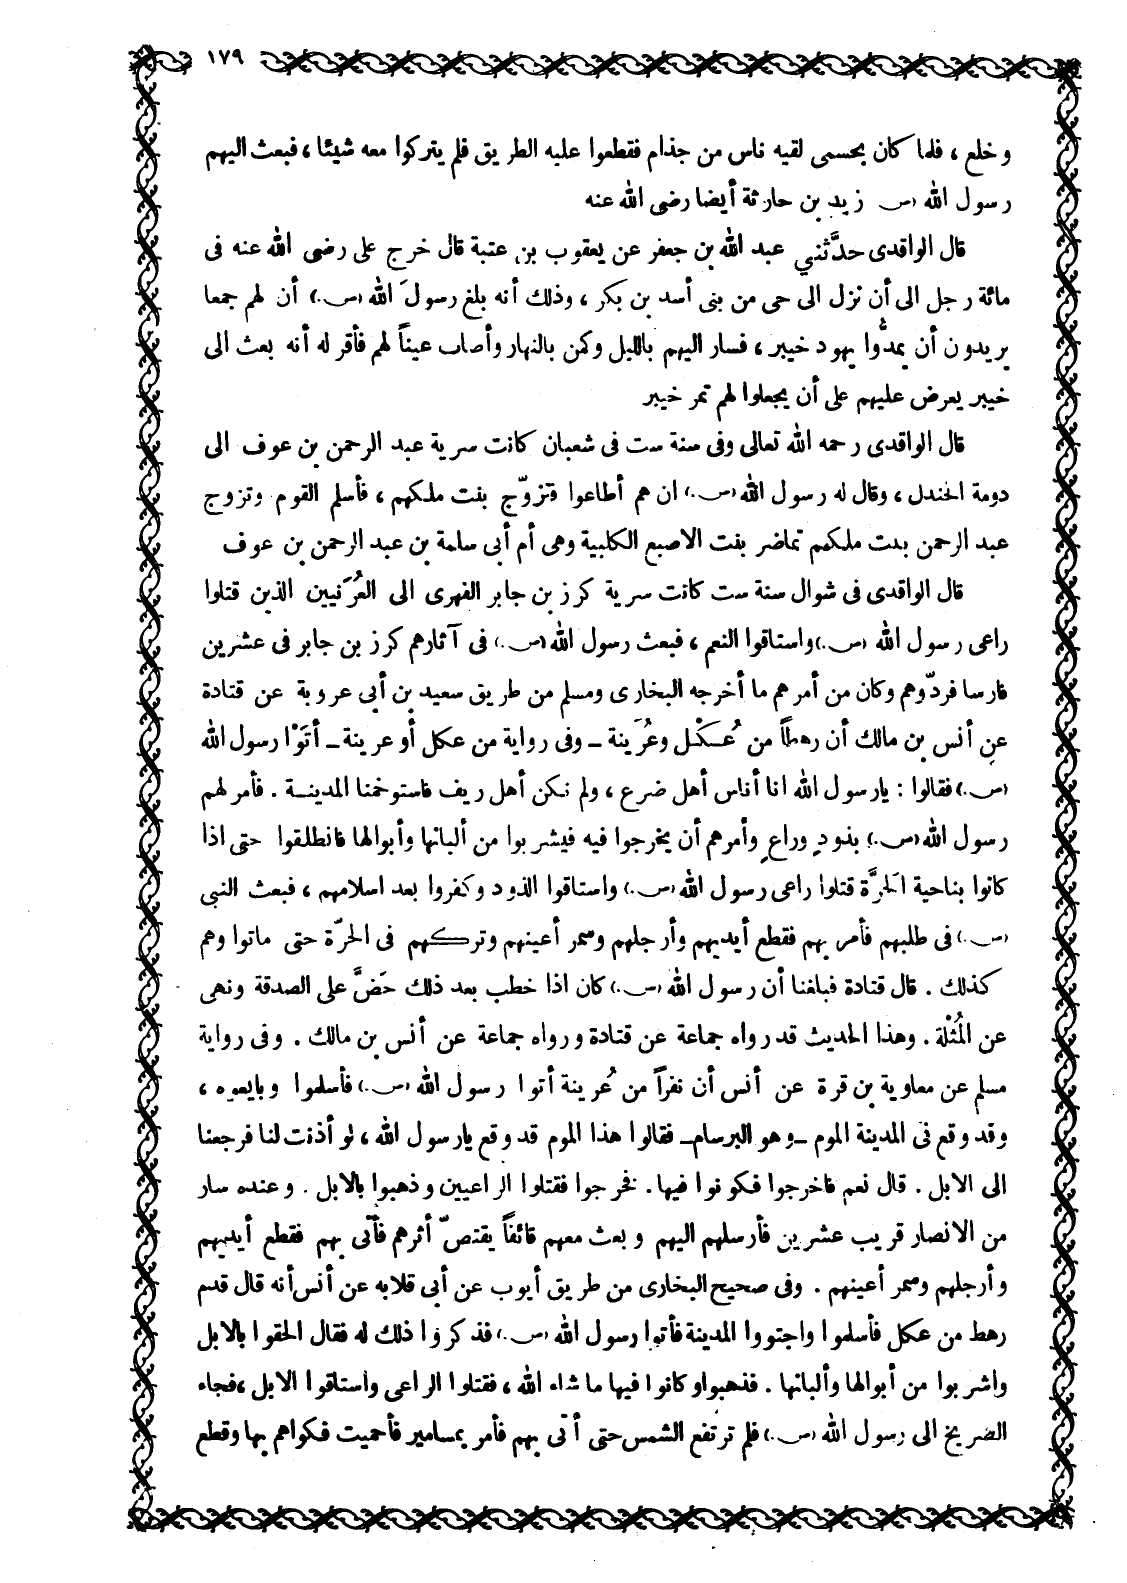 ١٧٩
وخلع ، فلما كان بحسمى لقيه ناس من جذام فقطعوا عليه الطريق فلم يتركوا معه شيئا ، فبعث اليهم
رسول الله (ص) زيد بن حارثة أيضا رضى الله عنه
قال الواقدى حدَّثني عبد الله بن جعفر عن يعقوب بن عتبة قال خرج على رضى الله عنه فى
مائة رجل الى أن نزل الى حى من بنى أسد بن بكر ، وذلك أنه بلغ رسولَ الله (ص.) أن لهم جمعا
يريدون أن يمدُّوا يهود خيبر ، فسار اليهم بالليل وكمن بالنهار وأصاب عيناً لهم فأقر له أنه بعث الى
خيبر يعرض عليهم على أن يجعلوا لهم تمر خيبر
قال الواقدى رحمه الله تعالى وفى سنة ست فى شعبان كانت سرية عبد الرحمن بن عوف الى
دومة الجندل ، وقال له رسول الله (ص.) ان هم أطاعوا فتزوّج بنت ملكهم ، فأسلم القوم وتزوج
عبد الرحمن بنت ملكهم تماضر بنت الاصبع الكلبية وهى أم أبى سلمة بن عبد الرحمن بن عوف
قال الواقدى فى شوال سنة ست كانت سرية كرز بن جابر الفهرى الى العُرَنيين الذين قتلوا
راعى رسول الله (ص.) واستاقوا النعم ، فبعث رسول الله (ص.) فى آثارهم كرز بن جابر فى عشرين
فارسا فردّوهم وكان من أمرهم ما أخرجه البخارى ومسلم من طريق سعيد بن أبى عروبة عن قتادة
عن أنس بن مالك أن رهطاً من عُكْل وعُرَينة ــ وفى رواية من عكل أو عرينة ــ أتَوْا رسول الله
(ص.) فقالوا : يارسول الله انا أناس أهل ضرع ، ولم نكن أهل ريف فاستوخمنا المدينة . فأمر لهم
رسول الله (ص.) بذودٍ وراعٍ وأمرهم أن يخرجوا فيه فيشربوا من ألبانها وأبوالها فانطلقوا حتى اذا
كانوا بناحية الحَرَّة قتلوا راعى رسول الله (ص.) واستاقوا الذود وكفروا بعد اسلامهم ، فبعث النبى
(ص.) فى طلبهم فأمر بهم فقطع أيديهم وأرجلهم وسمر أعينهم وتركهم فى الحرّة حتى ماتوا وهم
كذلك . قال قتادة فبلغنا أن رسول الله (ص.) كان اذا خطب بعد ذلك حَضَّ على الصدقة ونهى
عن المُثْلة . وهذا الحديث قد رواه جماعة عن قتادة ورواه جماعة عن أنس بن مالك . وفى رواية
مسلم عن معاوية بن قرة عن أنس أن نفراً من عُرينة أتوا رسول الله (ص.) فأسلموا وبايعوه ،
وقد وقع فى المدينة الموم ــ وهو البرسام ــ فقالوا هذا الموم قد وقع يارسول الله ، لو أذنت لنا فرجعنا
الى الابل . قال نعم فاخرجوا فكونوا فيها . فخرجوا فقتلوا الراعيين وذهبوا بالابل . وعنده سار
من الانصار قريب عشرين فأرسلهم اليهم وبعث معهم قائفاً يقتصّ أثرهم فأتى بهم فقطع أيديهم
وأرجلهم وسمر أعينهم . وفى صحيح البخارى من طريق أيوب عن أبى قلابه عن أنس أنه قال قدم
رهط من عكل فأسلموا واجتووا المدينة فأتوا رسول الله (ص.) فذكروا ذلك له فقال الحقوا بالابل
واشربوا من أبوالها وألبانها . فذهبوا وكانوا فيها ما شاء الله ، فقتلوا الراعى واستاقوا الابل ، فجاء
الصريخ الى رسول الله (ص.) فلم ترتفع الشمس حتى أتى بهم فأمر بمسامير فأحميت فكواهم بها وقطع